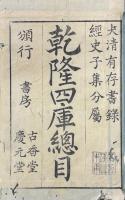 大清有存書錄
經史子集分屬
乾隆四庫總目
頒行
書房
古香堂
慶元堂